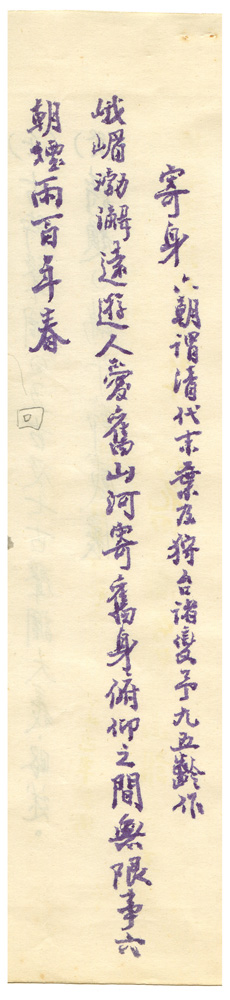 寄身 六朝謂清代末葉及狩台諸變予九五齡作
峨嵋渤澥遠遊人愛舊山河寄舊身俯仰之間無限事六
朝煙雨百年春
回